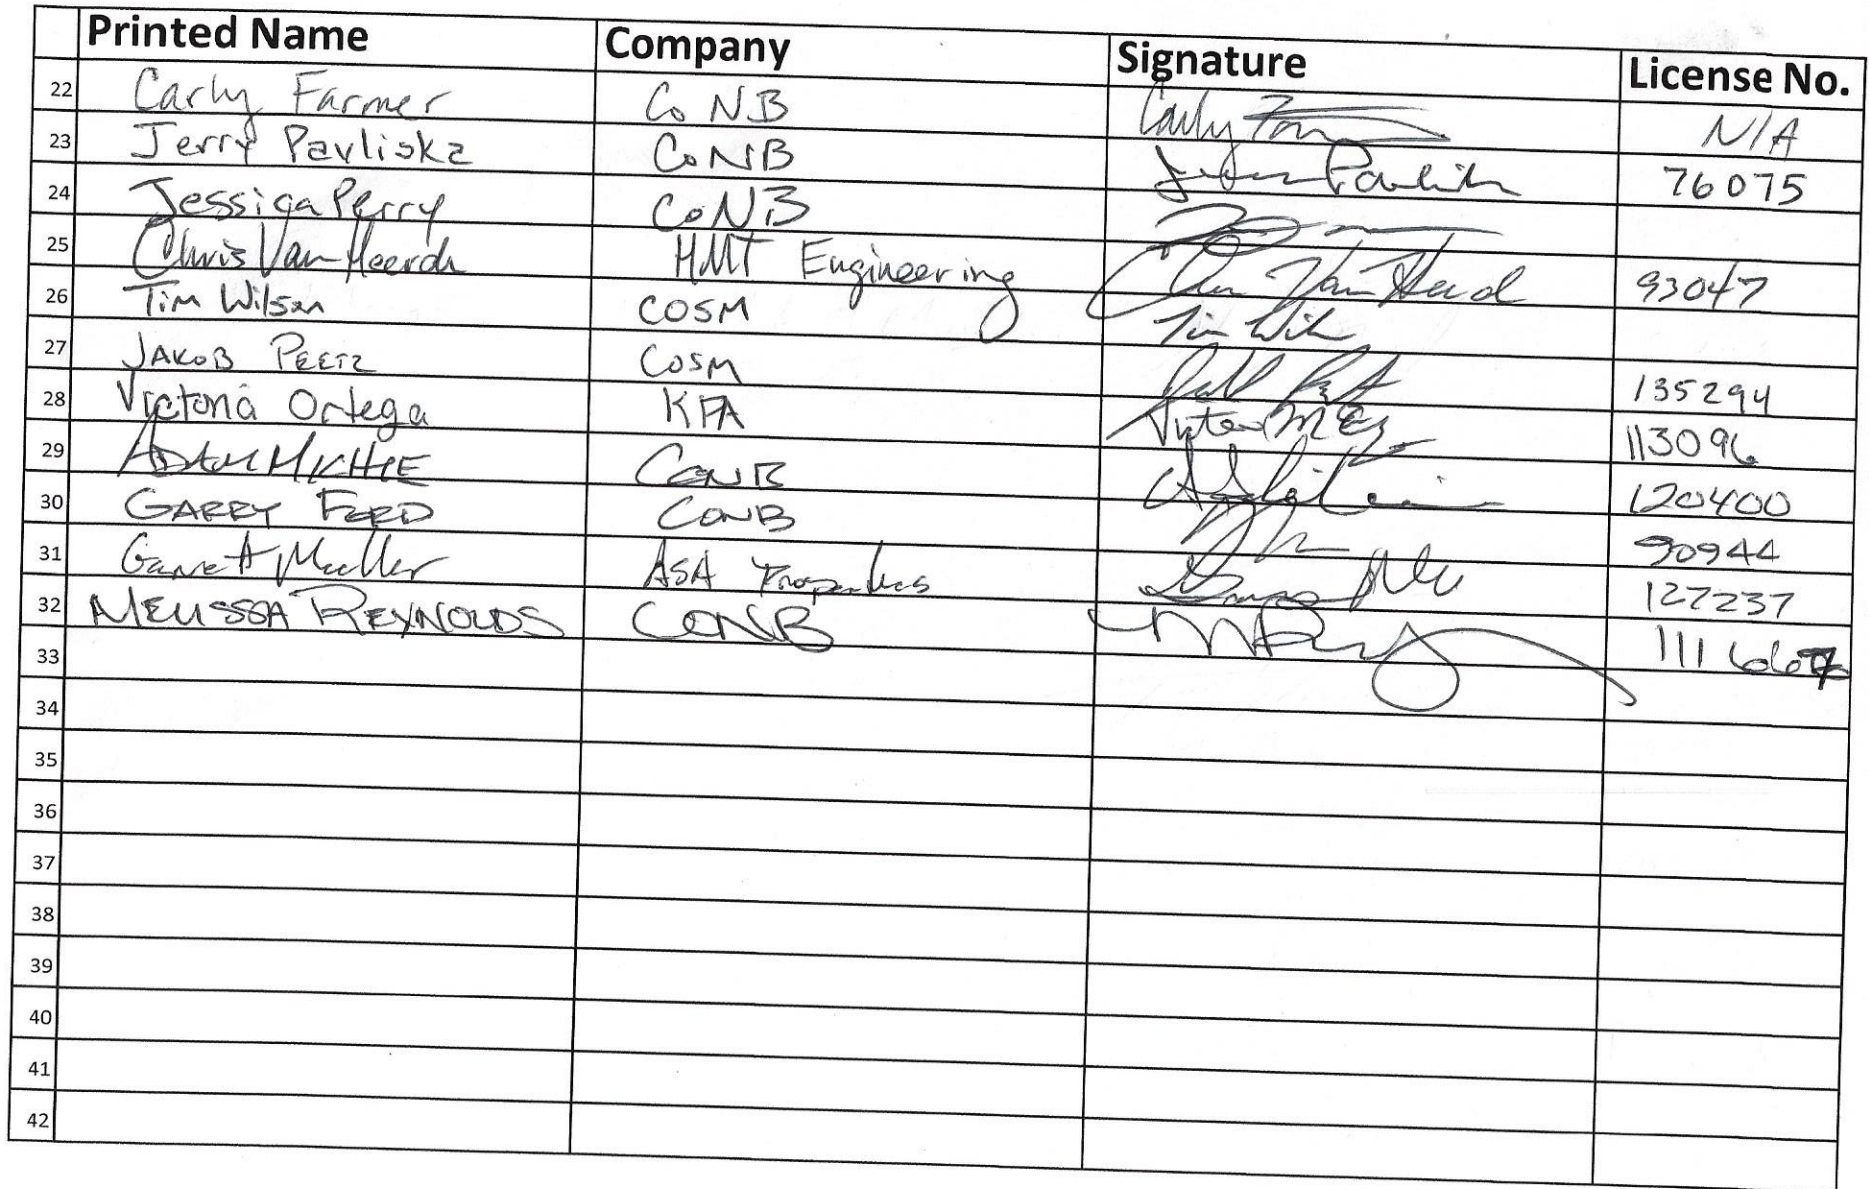 Printed Name Company Signature License No.
22 Carly Farmer CoNB Carly N/A
23 Jerry Pavliska CoNB 76075
24 Jessica Perry CoNB
25 Chris Van Heerde HMT Engineering Van 93047
26 Tim Wilson COSM Tim 
27 JAKOB PEETZ COSM 135294
28 Victoria Ortega KFA 113096
29 ADAM MICHIE CONB 120400
30 GARRY FORD CONB 90944
31 Garrett Mueller ASA Properties 127237
32 MELISSA REYNOLDS CONB
33
34
35
36
37
38
39
40
41
42